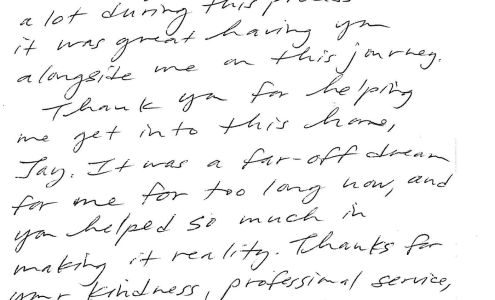 a lot during this process
it was great having you
alongside me on this journey.
Thank you for helping
me get into this home,
Jay. It was a far-off dream
for me for too long now, and
you helped so much in
making it reality. Thanks for
your kindness, professional service,